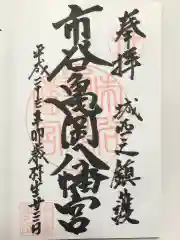 奉拝　城西之鎮護
市谷亀岡八幡宮
平成二十三辛卯歳弥生廿三日